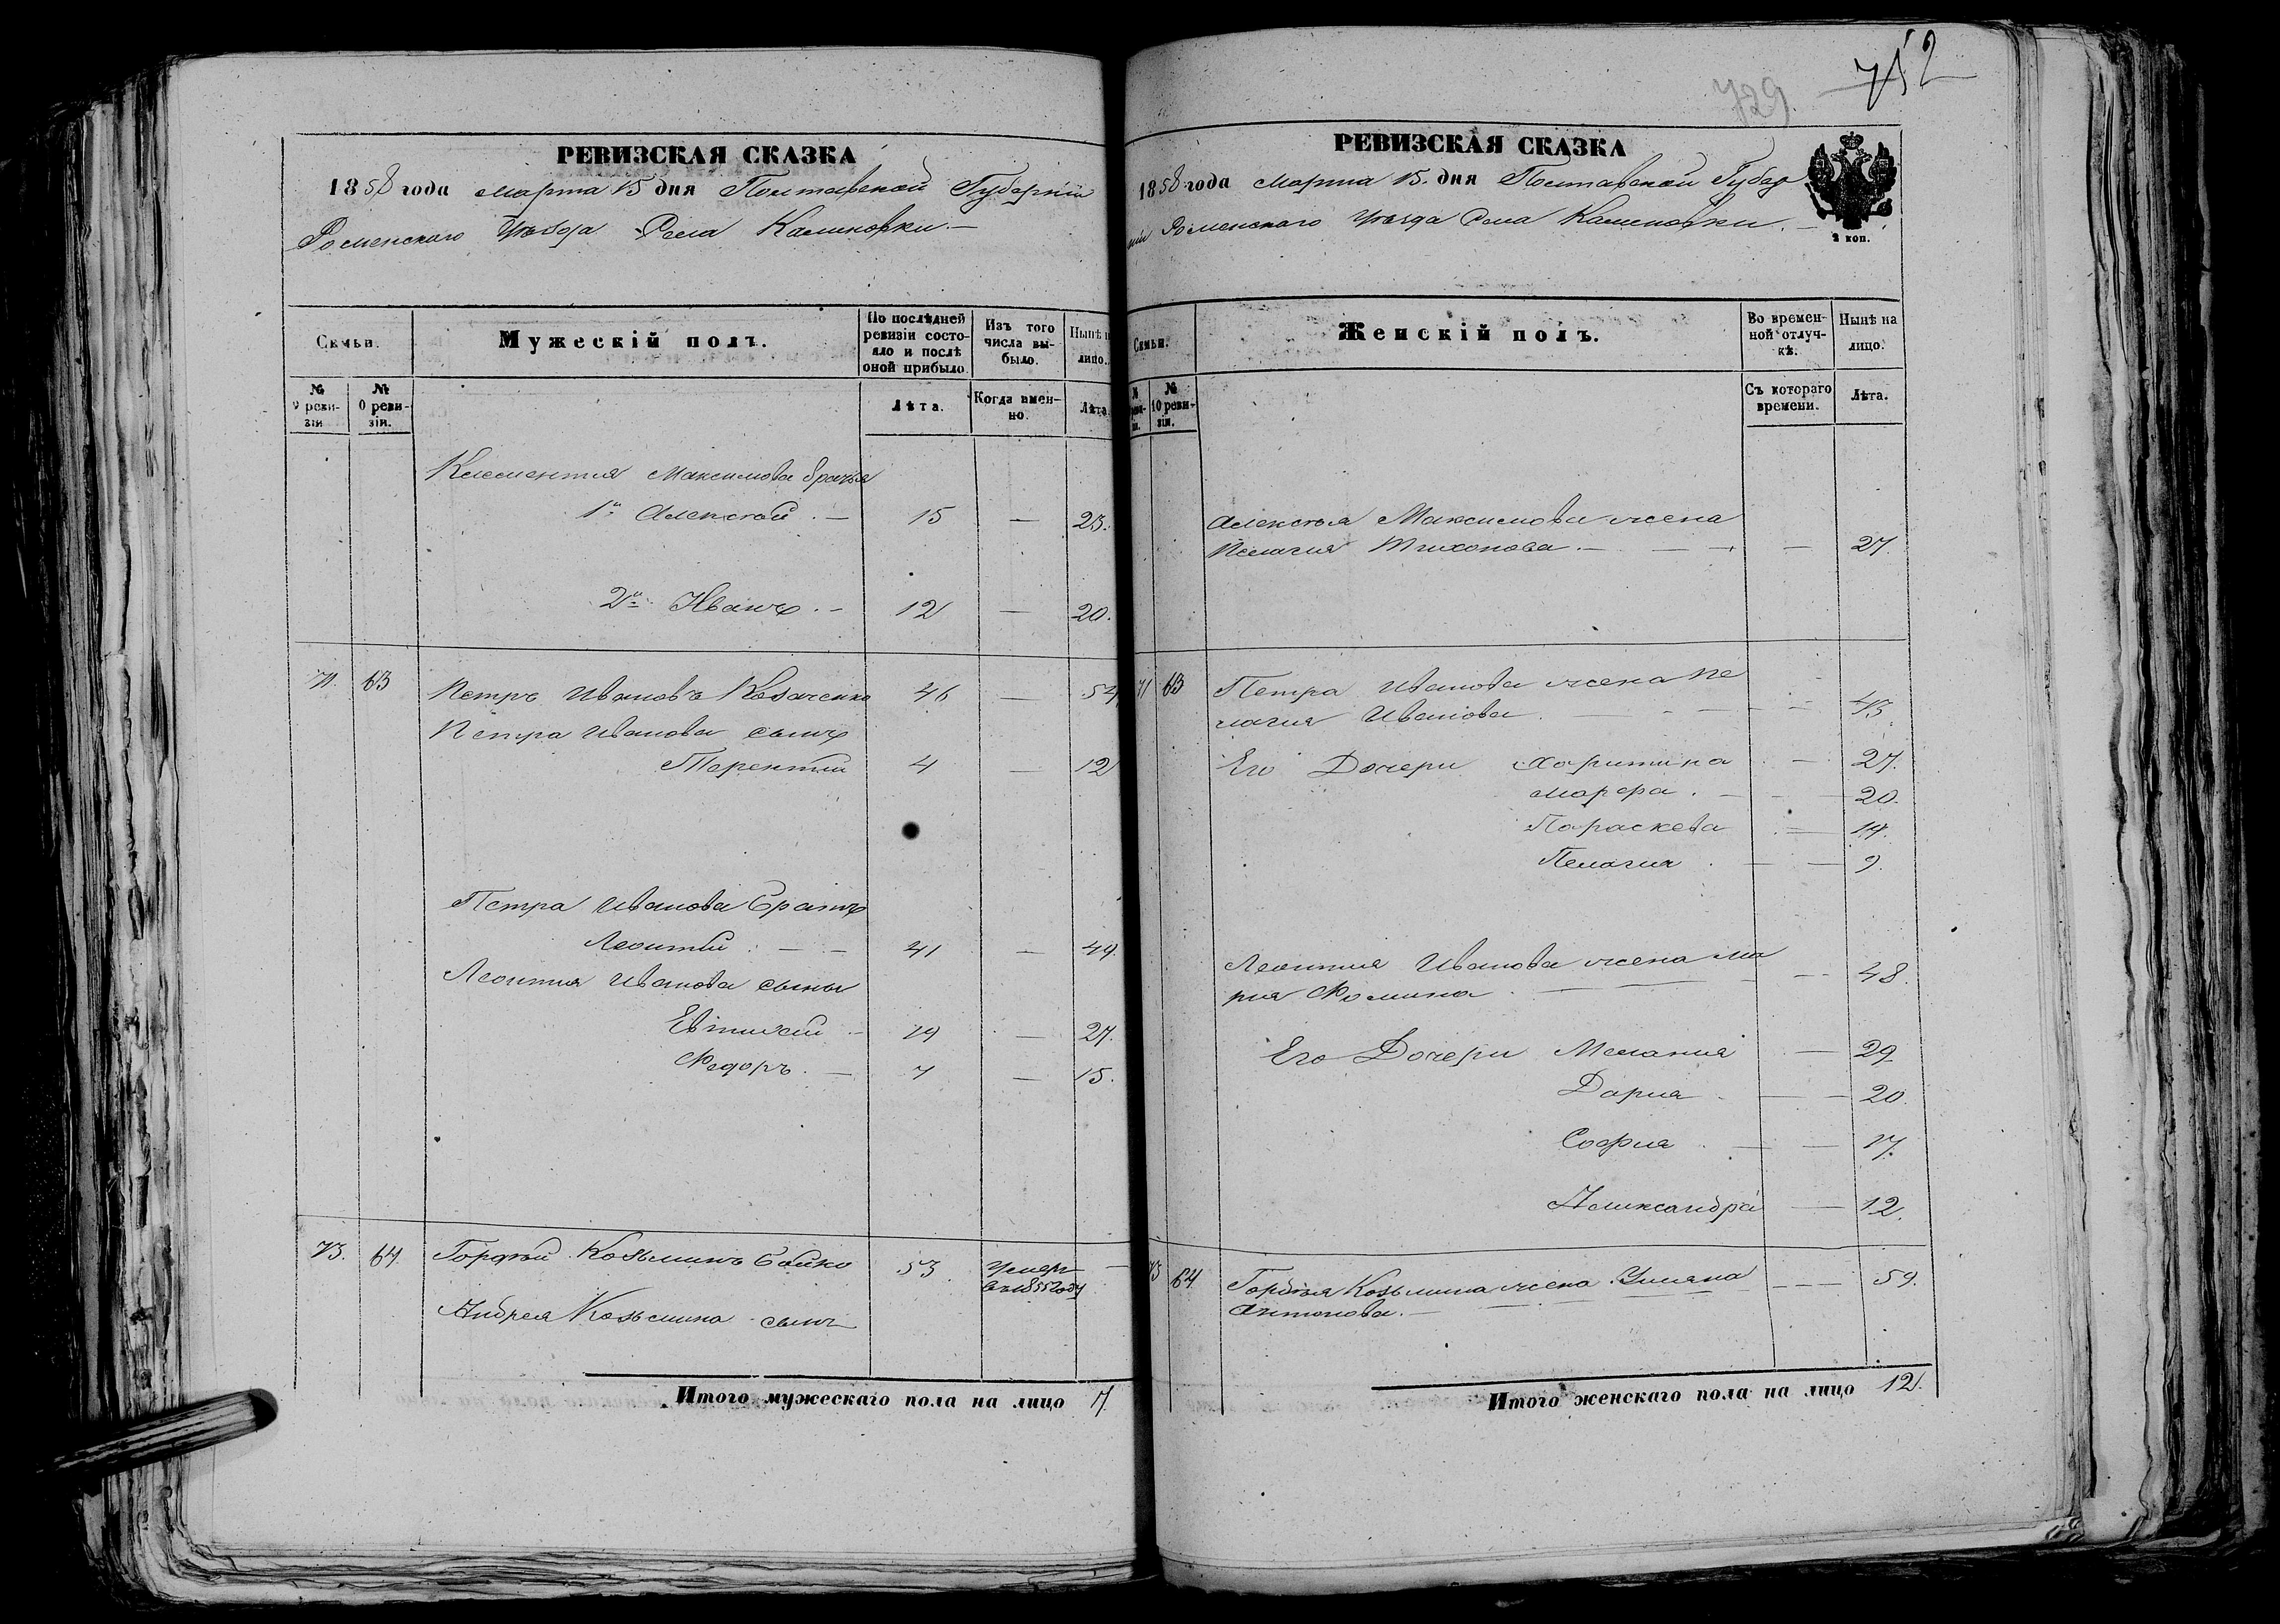 РЕВИЗСКАЯ СКАЗКА
1858 года Марта 15 дня Полтавской Губерніи
Роменскаго Уѣзда Села Калиновки.
Семьи.
Мужескій полъ.
По послѣдней ревизіи состояло и послѣ оной прибыло.
Изъ того числа выбыло.
Нынѣ на лицо.
№ 9 ревизіи
№ 10 ревизіи.
Лѣта.
Когда именно.
Лѣта.
Клементія Максимова братья
1й Алексѣй. — 15 — 23.
2й Иванъ. — 12 — 20.
71. 63 Петръ Ивановъ Козаченко 46 — 54
Петра Иванова сынъ
Терентій 4 — 12
Петра Иванова братъ
Леонтій. — — 41 — 49.
Леонтія Иванова сыны
Евтихій — 19 — 27.
Федоръ. — 7 — 15.
73. 64. Гордѣй Козьминъ Бойко 53. умеръ —
въ 1855 году
Андрея Козьмина сынъ
Итого мужескаго пола на лицо 7.
729.
752
РЕВИЗСКАЯ СКАЗКА
1858 года Марта 15. дня Полтавской Губер
ніи Роменскаго Уѣзда Села Калиновки. —
2 коп.
Семьи.
Женскій полъ.
Во временной отлучкѣ.
Нынѣ на лицо.
№ ревизіи.
№ 10 ревизіи.
Съ котораго времени.
Лѣта.
Алексѣя Максимова жена
Пелагия Тихонова. — — — — 27.
71 63 Петра Иванова жена Пе
лагия Иванова. — — — 43.
Его Дочери Харитина — 27.
Марфа. — — 20.
Параскева — 14.
Пелагия. — — 9.
Леонтия Иванова жена Ма
рия Фомина. — — 48.
Его Дочери Мелания — 29
Дария. — — 20.
София. — — 17.
Александра — 12.
73 64 Гордѣя Козьмина жена Улияна — — 59.
Антонова. —
Итого женскаго пола на лицо 12.